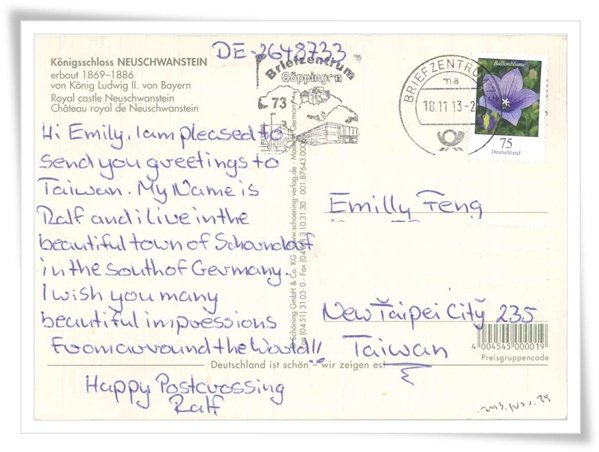 DE-2648733
Königsschloss NEUSCHWANSTEIN
erbaut 1869–1886
von König Ludwig II. von Bayern
Royal castle Neuschwanstein
Château royal de Neuschwanstein
Hi Emily, I am pleased to
send you greetings to
Taiwan. My Name is
Ralf and i live in the
beautiful town of Schorndorf
in the south of Germany.
I wish you many
beautiful impressions
From arround the World!!
Happy Postcrossing
Ralf
Briefzentrum
Göppingen
73
BRIEFZENTRUM
ma
18.11.13-2
Ballonblume
75
Deutschland
Emilly Feng
New Taipei City 235
Taiwan
4 004545 000019
Preisgruppencode
Schöning GmbH & Co. KG · www.schoening-verlag.de
Deutschland ist schön – wir zeigen es!